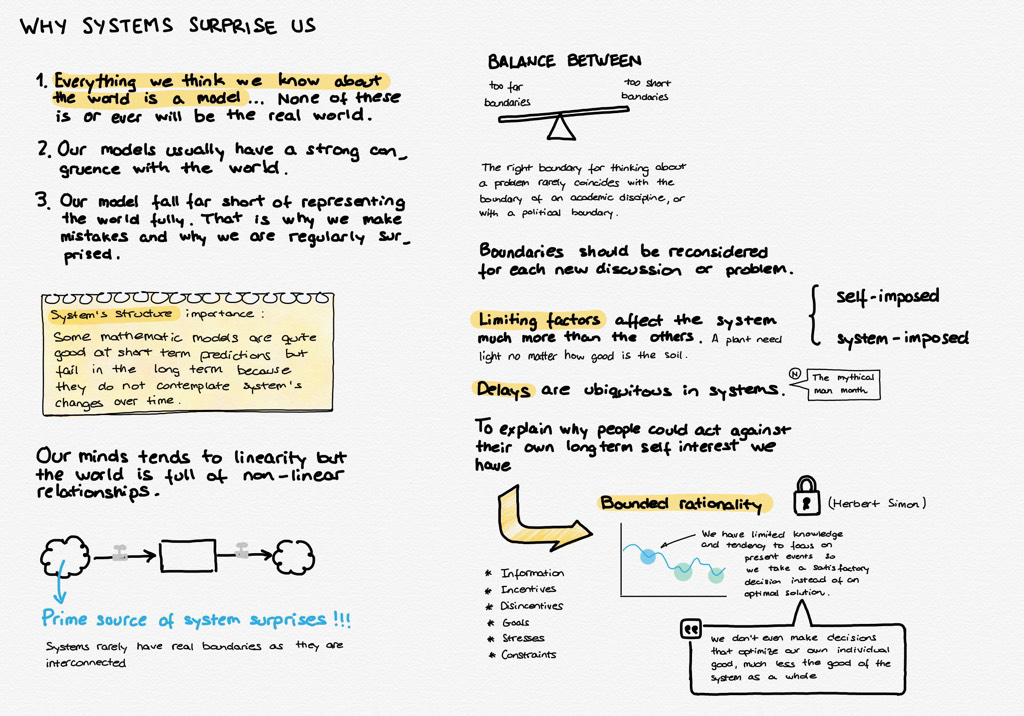 WHY SYSTEMS SURPRISE US
1. Everything we think we know about
the world is a model... None of these
is or ever will be the real world.
2. Our models usually have a strong con_
gruence with the world.
3. Our model fall far short of representing
the world fully. That is why we make
mistakes and why we are regularly sur_
prised.
System's structure importance:
Some mathematic models are quite
good at short term predictions but
fail in the long term because
they do not contemplate system's
changes over time.
Our minds tends to linearity but
the world is full of non-linear
relationships.
Prime source of system surprises !!!
Systems rarely have real boundaries as they are
interconnected
BALANCE BETWEEN
too far
bondaries
too short
bondaries
The right boundary for thinking about
a problem rarely coincides with the
boundary of an academic discipline, or
with a political boundary.
Boundaries should be reconsidered
for each new discussion or problem.
Limiting factors affect the system
much more than the others. A plant need
light no matter how good is the soil.
self-imposed
system-imposed
Delays are ubiquitous in systems.
N
The mythical
man month
To explain why people could act against
their own long term self interest we
have
Bounded rationality
(Herbert Simon)
* Information
* Incentives
* Disincentives
* Goals
* Stresses
* Constraints
We have limited knowledge
and tendency to focus on
present events so
we take a satisfactory
decision instead of an
optimal solution.
We don't even make decisions
that optimize our own individual
good, much less the good of the
system as a whole